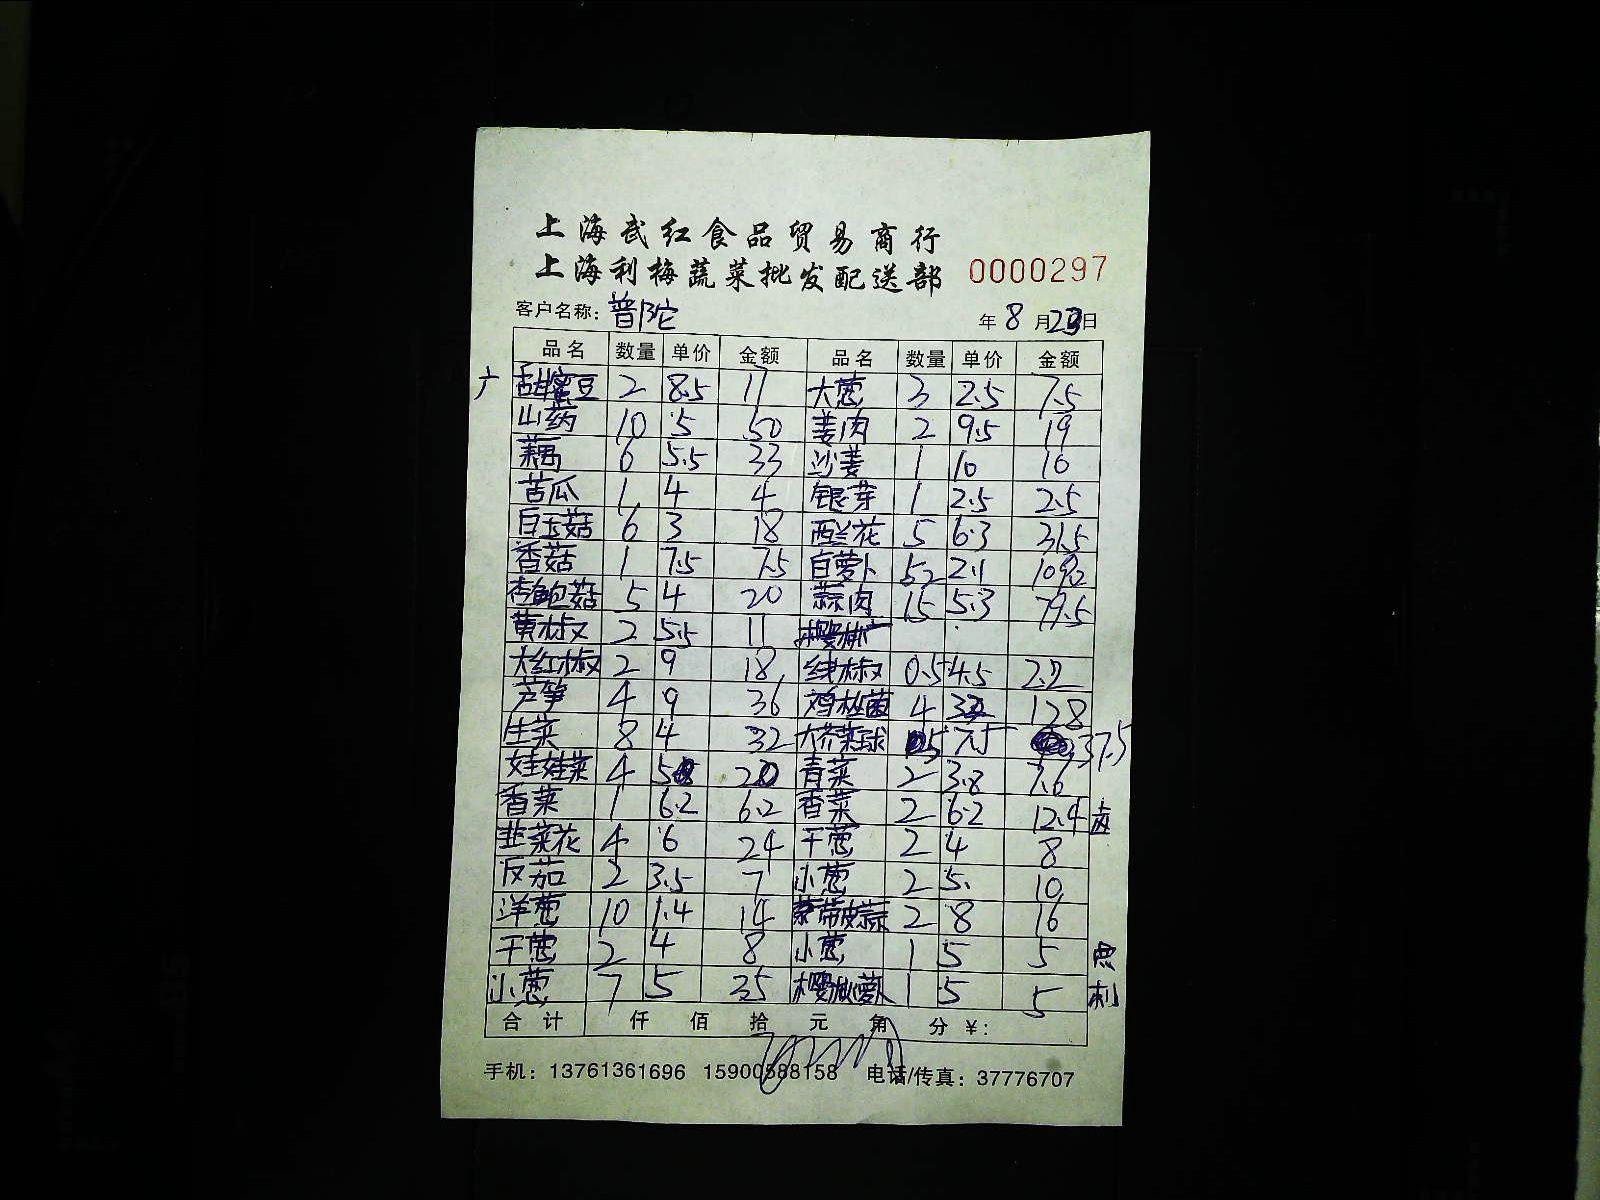 上海武红食品贸易商行
上海利梅蔬菜批发配送部 0000297
客户名称: 普陀 年 8 月 23 日
品名 数量 单价 金额 品名 数量 单价 金额
甜蜜豆 2 8.5 17 大葱 3 2.5 7.5
山药 10 5 50 姜肉 2 9.5 19
藕 6 5.5 33 沙姜 1 10 10
苦瓜 1 4 4 银芽 1 2.5 2.5
白玉菇 6 3 18 西兰花 5 6.3 31.5
香菇 1 7.5 7.5 白萝卜 52 2.1 109.2
杏鲍菇 5 4 20 蒜肉 15 5.3 79.5
黄椒 2 5.5 11
大红椒 2 9 18 线椒 0.5 4.5 2.2
芦笋 4 9 36 鸡枞菌 4 32 128
生菜 8 4 32 大芥菜球 5 7.5 37.5
娃娃菜 4 5 20 青菜 2 3.8 7.6
香菜 1 6.2 6.2 香菜 2 6.2 12.4
韭菜花 4 6 24 干葱 2 4 8
反茄 2 3.5 7 小葱 2 5. 10
洋葱 10 1.4 14 带皮蒜 2 8 16
干葱 2 4 8 小葱 1 5 5
小葱 7 5 35 樱桃萝卜 1 5 5
合计 仟 佰 拾 元 角 分 ¥:
手机: 13761361696 15900588158 电话/传真: 37776707